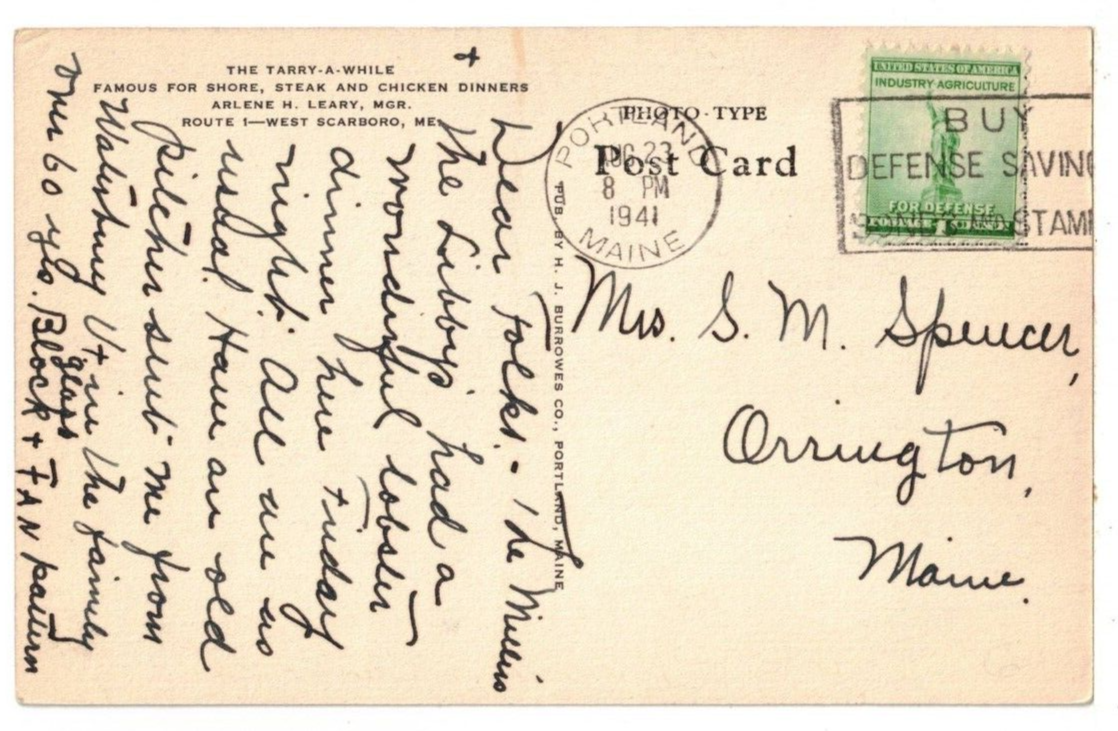 THE TARRY-A-WHILE
FAMOUS FOR SHORE, STEAK AND CHICKEN DINNERS
ARLENE H. LEARY, MGR.
ROUTE 1—WEST SCARBORO, ME.
Dear Folks. - The Millers
+ the Libby's had a
wonderful lobster
dinner here Friday
night. All are as
usual. Have an old
pitcher sent me from
Waterbury Vt in the family
over 60 yrs. glass
Block + FAN pattern
PUB. BY H. J. BURROWES CO., PORTLAND, MAINE
PHOTO-TYPE
Post Card
PORTLAND
AUG 23
8 PM
1941
MAINE
UNITED STATES OF AMERICA
INDUSTRY AGRICULTURE
FOR DEFENSE
BUY
DEFENSE SAVING
BONDS AND STAM
Mrs. S. M. Spencer,
Orrington,
Maine.